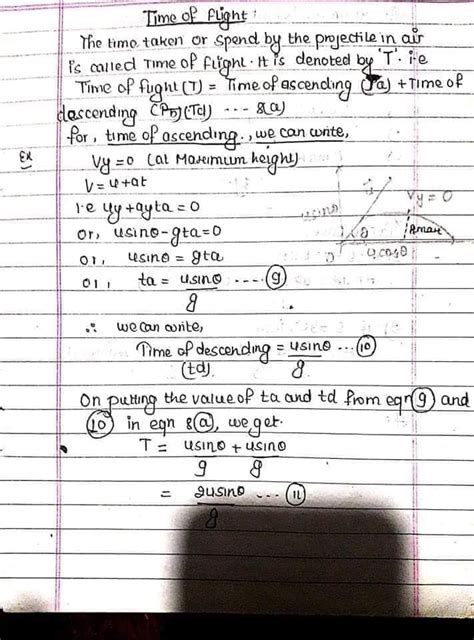 Time of flight:
The time taken or spend by the projectile in air
is called Time of flight. It is denoted by 'T'. i.e
Time of flight (T) = Time of ascending (Ta) + Time of
descending (Td) ---- 8(a)
for, time of ascending., we can write,
Ex
Vy=0 (at Maximum height)
V=u+at
i.e uy+ayta=0
or, usinθ-gta=0
or, usinθ = gta
or, ta = usinθ ---- (9)
g
Vy=0
usinθ
θ
Hmax
ucosθ
∴ we can write,
Time of descending = usinθ --- (10)
(td) g
On putting the value of ta and td from eqn (9) and
(10) in eqn 8(a), we get.
T = usinθ + usinθ
g g
= 2usinθ --- (11)
g